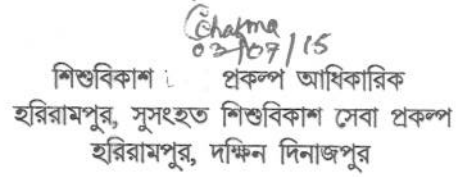 Sharma
03/07/15
শিশুবিকাশ প্রকল্প আধিকারিক
হরিরামপুর, সুসংহত শিশুবিকাশ সেবা প্রকল্প
হরিরামপুর, দক্ষিন দিনাজপুর